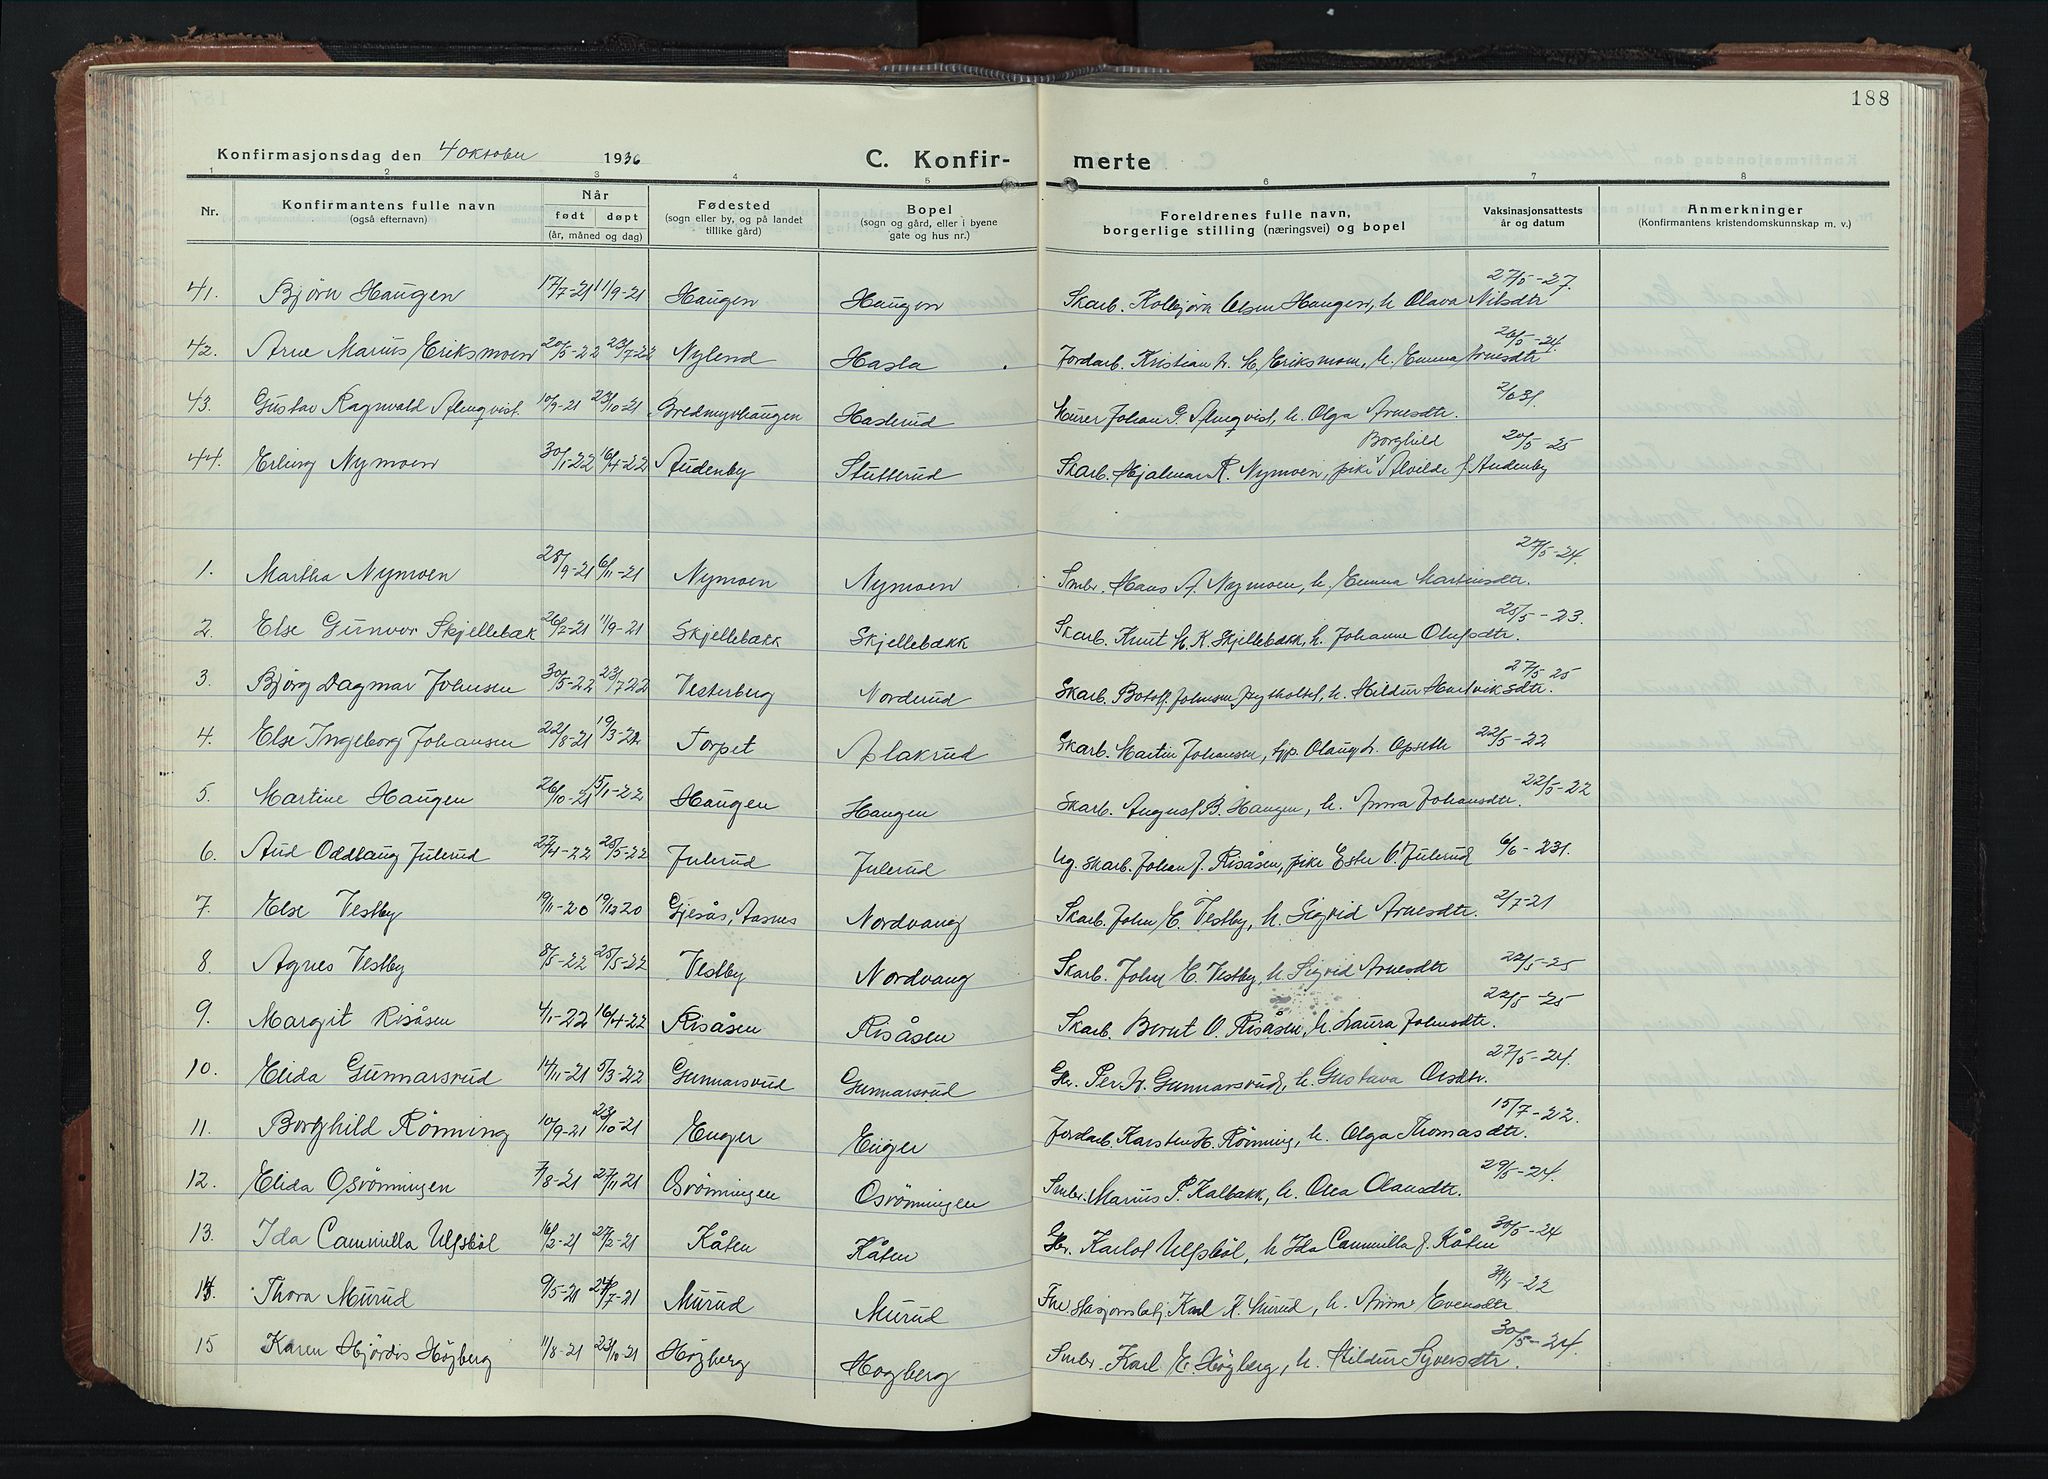 188
Konfirmasjonsdag den 4 oktober 1936 C. Konfir- merte
1 2 3 4 5 6 7 8
Nr. Konfirmantens fulle navn (også efternavn) Når født døpt (år, måned og dag) Fødested (sogn eller by, og på landet tillike gård) Bopel (sogn og gård, eller i byene gate og hus nr.) Foreldrenes fulle navn, borgerlige stilling (næringsvei) og bopel Vaksinasjonsattests år og datum Anmerkninger (Konfirmantens kristendomskunnskap m. v.)
41. Bjørn Haugen 17/7-21 11/9-21 Haugen Haugen Skarb. Kolbjörn Olsen Haugen, h. Olava Nilsdtr 27/5-27.
42. Arne Marius Eriksmoen 20/5-22 23/7-22 Nylend Hasla Jordarb. Kristian Eriksmoen, h. Emma Arnesdtr 20/5-24.
43. Gustav Ragnvald Almqvist. 10/9-21 23/10-21 Bredmyrhaugen Haslerud Murer Johan G. Almqvist, h. Olga Arnesdtr. 2/6 31.
44. Erling Nymoen 30/1-22 16/4-22 Audenby Stutterud Skarb. Hjalmar R. Nymoen, pike Borghild Alvilde J. Audenby 20/5-25
1. Martha Nymoen 28/9-21 6/11-21 Nymoen Nymoen Smbr. Hans A. Nymoen, h. Emma Martinsdtr. 27/5-24.
2. Else Gunvor Skjellebæk 26/2-21 11/9-21 Skjellebækk Skjellebækk Skarb. Knut H. K. Skjellebækk, h. Johanne Olufsdtr. 25/5-23.
3. Bjørg Dagmar Johnsen 30/5-22 23/7-22 Vesterberg Norderud Skarb. Botolf Johnsen, h. Hildur Hartviksdtr. 27/5-25
4. Else Ingeborg Johansen 22/8-21 19/3-22 Torpet Aplakrud Skarb. Martin Johansen, Olaug Opseth 22/5-22
5. Martine Haugen 26/10-21 15/1-22 Haugen Haugen Skarb. August B. Haugen, h. Anna Johansdtr. 22/5-22
6. Aud Oddlaug Julerud 27/4-22 28/5-22 Julerud Julerud Ug. skarb. Johan J. Risåsen, pike Ester O. Julerud 6/6-231.
7. Else Vestby 19/11-20 19/12 20 Gjesås, Aasnes Nordvang Skarb. John E. Vestby, h. Sigrid Arnesdtr. 2/7-21
8. Agnes Vestby 8/5-22 25/5-22 Vestby Nordvang Skarb. John E. Vestby, h. Sigrid Arnesdtr 22/5-25
9. Margit Risåsen 4/1-22 16/4-22 Risåsen Risåsen Skarb. Bernt O. Risåsen, h. Laura Johnsdtr. 22/5-25
10. Elida Gunnarsrud 14/11-21 5/3-22 Gunnarsrud Gunnarsrud Gbr. Per Gunnarsrud, h. Gustava Olsdtr. 27/5-24.
11. Borghild Rönning 10/9-21 23/10-21 Enger Enger Jordarb. Karsten H. Rönning, h. Olga Thomasdtr. 15/7-22.
12. Elida Osrönningen 7/8-21 27/11-21 Osrönningen Osrönningen Smbr. Marius P. Kalbakk, h. Olea Olausdtr. 29/5-24.
13. Ida Cammilla Ulfsböl 16/2-21 27/2-21 Kåten Kåten Gbr. Karlot Ulfsböl, h Ida Cammilla J. Kåten 30/5-24
14. Thora Murud 9/5-21 24/7-21 Murud Murud Fhv. stasjonsbetj. Karl Murud, h. Anna Evensdtr 31/8-22
15 Karen Hjördis Högberg 11/8-21 23/10-21 Högberg Högberg Smbr. Karl E. Högberg, h. Hildur Syversdtr. 30/5-24.